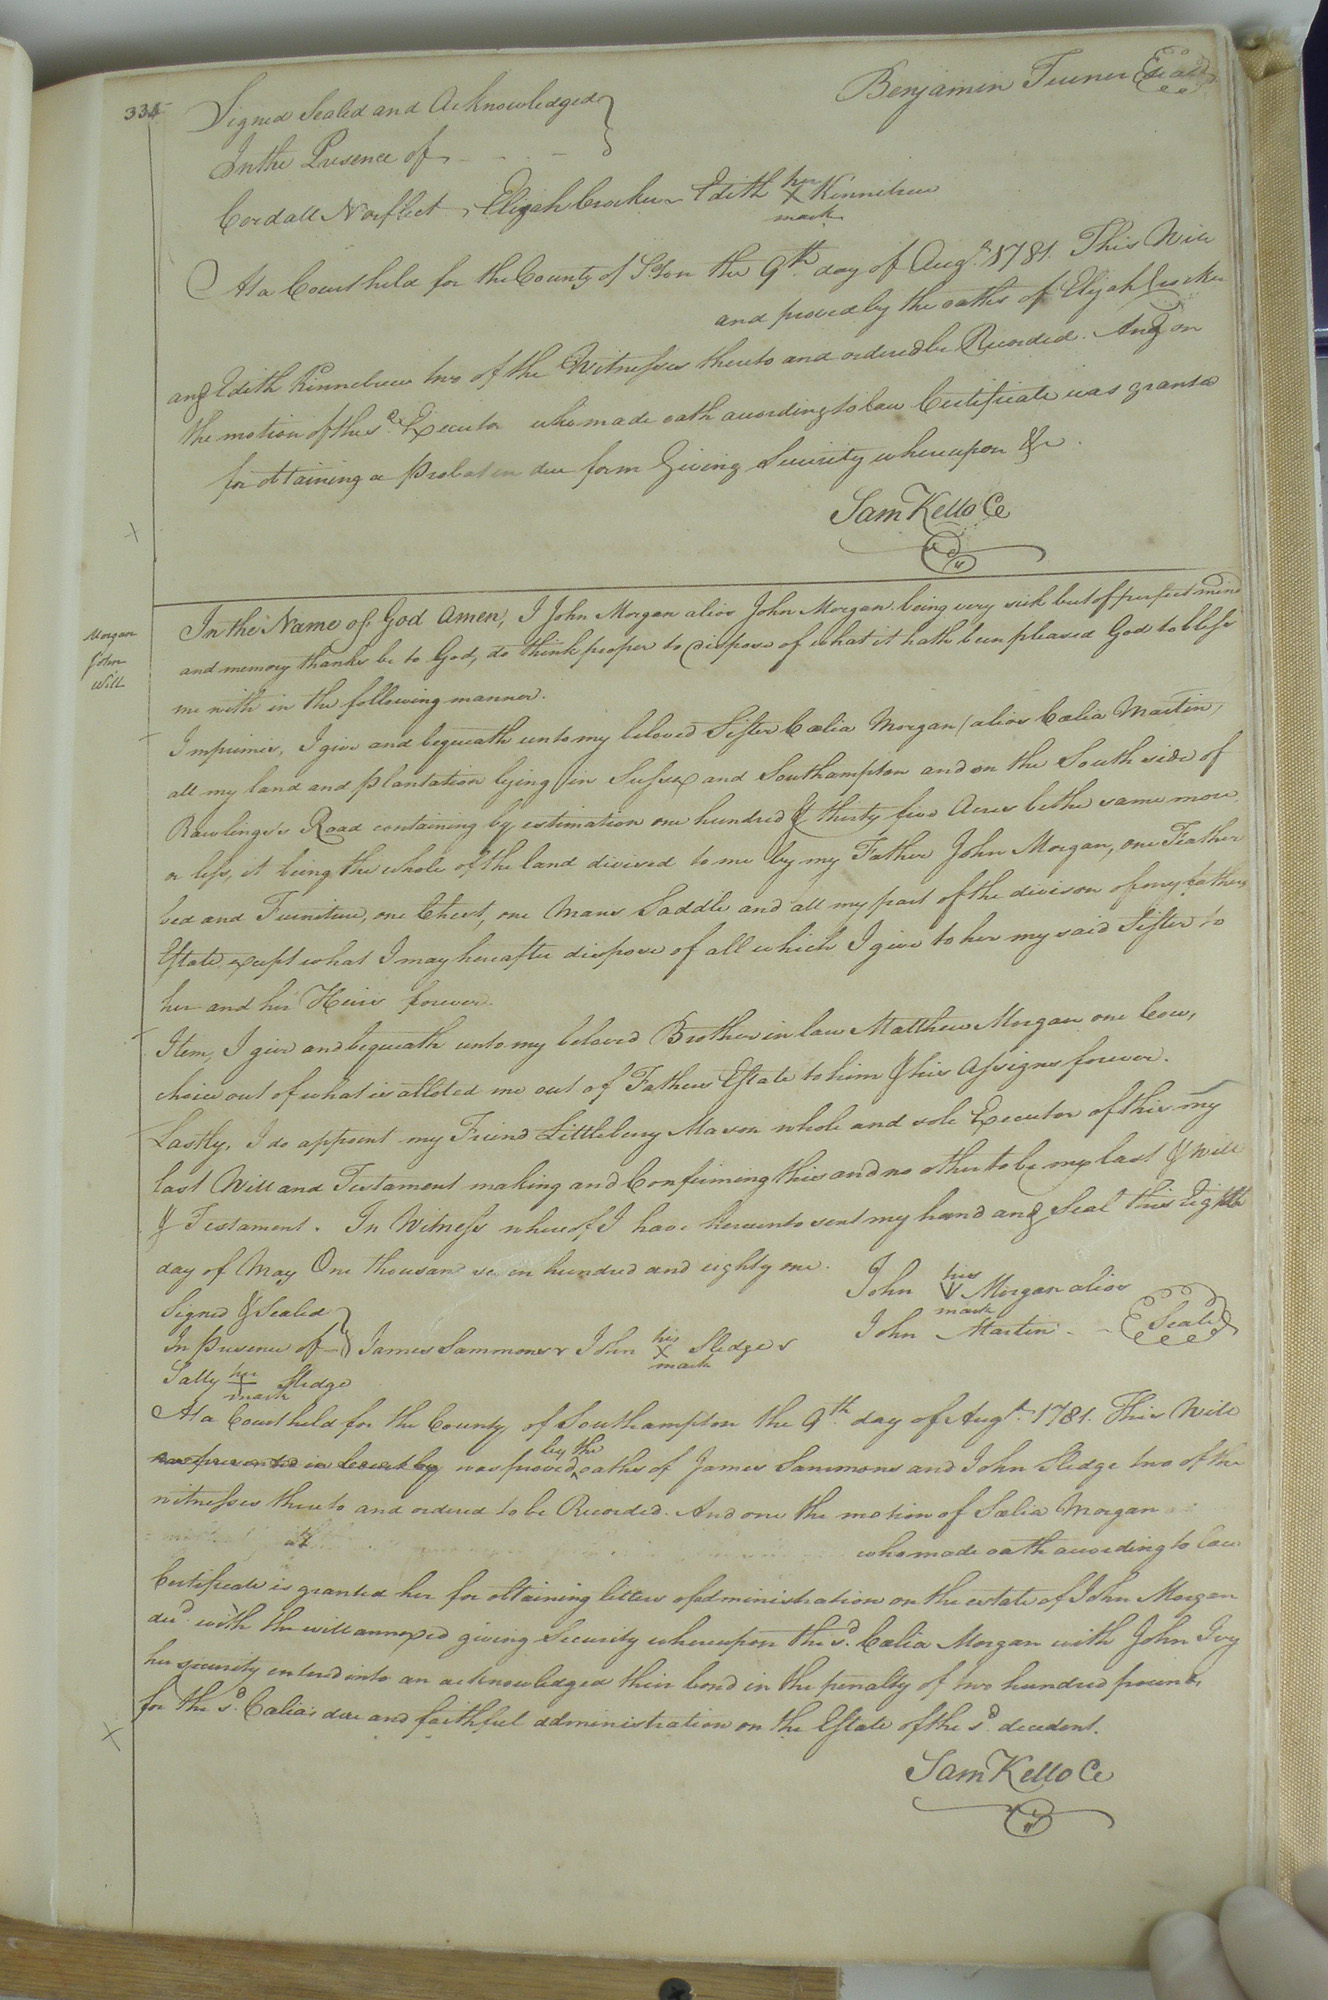 334
Benjamin Turner Seal
Signed Sealed and Acknowledged
In the Presence of
Cordall Norfleet, Elijah Crocker, Edith her X mark Kinnebrew
At a Court held for the County of S°ton the 9th day of Augt. 1781. This Will
and proved by the oaths of Elijah Crocker
and Edith Kinnebrew two of the Witnesses thereto and ordered be Recorded. And on
the motion of the sd. Executor who made oath according to law Certificate was granted
for obtaining a Probat in due form Giving Security whereupon &c.
Sam Kello Ce
Morgan
John
Will
In the Name of God Amen, I John Morgan alios John Morgan being very sick but of perfect mind
and memory thanks be to God, do think proper to dispose of what it hath been pleased God to bless
me with in the following manner.
Imprimis, I give and bequeath unto my beloved Sister Cælia Morgan (alios Cælia Martin,
all my land and plantation lying in Sussex and Southampton and on the South side of
Rawlings's Road containing by estimation one hundred & thirty five Acres be the same more
or less, it being the whole of the land divised to me by my Father John Morgan, one Feather
bed and Furniture, one Chest, one Mans Saddle and all my part of the divison of my fathers
Estate except what I may hereafter dispose of all which I give to her my said Sister to
her and her Heirs forever.
Item, I give and bequeath unto my beloved Brother in law Matthew Morgan one Cow,
choice out of what is alloted me out of Fathers Estate to him & his Assigns forever.
Lastly, I do appoint my Friend Littleberry Mason whole and sole Executor of this my
last Will and Testament making and Confirming this and no other to be my last & Will
& Testament. In Witness whereof I have hereunto sent my hand and Seal this Eighth
day of May One thousand seven hundred and eighty one.
John his mark Morgan alios
Signed & Sealed
John Martin Seal
In Presence of James Sammons John his X mark Sledge
Sally her mark Sledge
At a Court held for the County of Southampton the 9th day of Augt. 1781. This Will
was presented in Court by was proved by the oaths of James Sammons and John Sledge two of the
witnesses thereto and ordered to be Recorded. And one the motion of Sælia Morgan
who made oath according to law
Certificate is granted her for obtaining letters of administration on the estate of John Morgan
decd. with the will annexed giving Security whereupon the sd. Cælia Morgan with John Ivy
her security entered into an acknowledged their bond in the penalty of two hundred pounds
for the sd. Calia's due and faithful administration on the Estate of the sd. decedent.
Sam Kello Ce